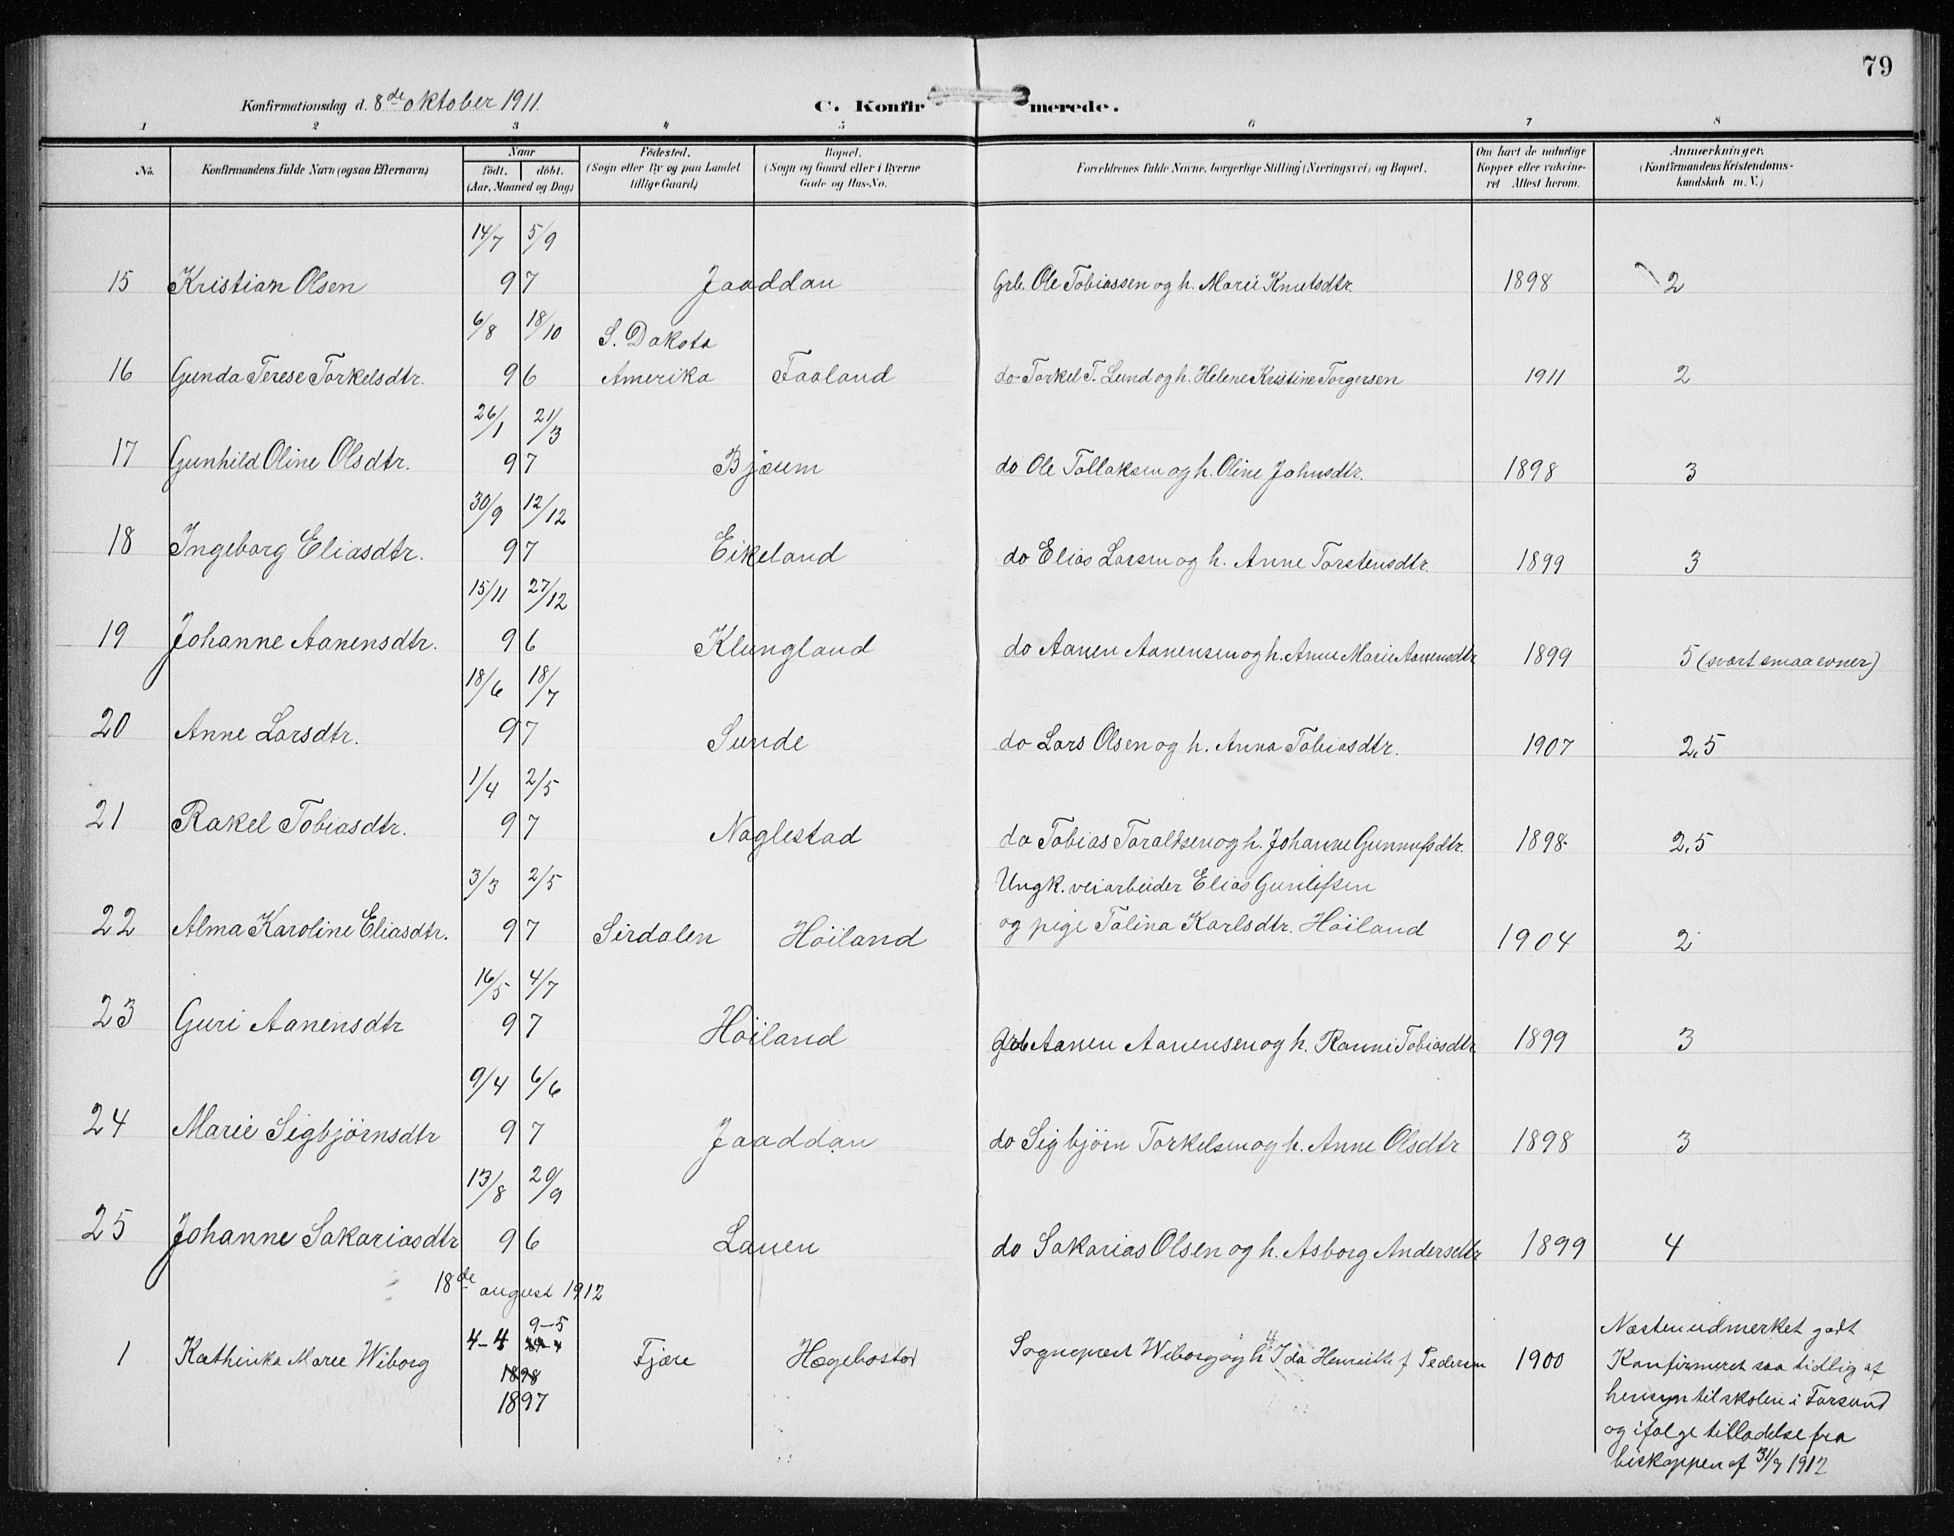 79
Konfirmationsdag d. 8de oktober 1911. C. Konfirmerede.
1 2 3 4 5 6 7 8
No. Konfirmandens fulde Navn (ogsaa Efternavn) Naar födt. döbt. (Aar, Maaned og Dag) Födested. (Sogn eller By og paa Landet tillige Gaard) Bopæl. (Sogn og Gaard eller i Byerne Gade og Hus-No. Forældrenes fulde Navne, borgerlige Stilling (Næringsvei) og Bopæl. Om havt de naturlige Kopper eller vakcineret Attest herom. Anmærkninger. (Konfirmandens Kristendomskundskab m. V.)
14/7 5/9
15 Kristian Olsen 97 Jaaddan Grb. Ole Tobiassen og h. Marie Knutsdtr. 1898 2
6/8 18/10 S. Dakota
16 Gunda Terese Torkelsdtr. 96 Amerika Faaland do Torkel T. Lund og h. Helene Kristine Torgersen 1911 2
26/1 21/3
17 Gunhild Oline Olsdtr. 97 Bjærum do Ole Tollaksen og h. Oline Johnsdtr. 1898 3
30/9 12/12
18 Ingeborg Eliasdtr. 97 Eikeland do Elias Larsen og h. Anne Torstensdtr. 1899 3
15/11 27/12
19 Johanne Aanensdtr. 96 Klungland do Aanen Aanensen og h. Anne Marie Aanensdtr 1899 5 (svært smaa evner)
18/6 18/7
20 Anne Larsdtr. 97 Sunde do Lars Olsen og h. Anna Tobiasdtr. 1907 2,5
1/4 2/5
21 Rakel Tobiasdtr. 97 Naglestad do Tobias Toraldsen og h. Johanne Gunnufsdtr. 1898 2,5
3/3 2/5 Ungk. veiarbeider Elias Gunlefsen
22 Alma Karoline Eliasdtr. 97 Sirdalen Höiland og pige Talina Karlsdtr. Höiland 1904 2
16/5 4/7
23 Guri Aanensdtr 97 Höiland Grb Aanen Aanensen og h. Ranni Tobiasdtr 1899 3
9/4 6/6
24 Marie Sigbjörnsdtr 97 Jaaddan do Sigbjörn Torkelsen og h. Anne Olsdtr 1898 3
13/8 20/9
25 Johanne Sakariasdtr 96 Lauen do Sakarias Olsen og h. Asborg Andersdtr 1899 4
18de august 1912
9-5
1 Kathinka Marie Wiborg 4-4 Fjære Hægebostad Sogneprest Wiborg og h Ida Henriette f Pedersen 1900 Næsten udmerket godt
1898 Konfirmeret saa tidlig af
1897 hensyn til skolen i Farsund
og ifølge tilladelse fra
biskoppen af 31/7 1912